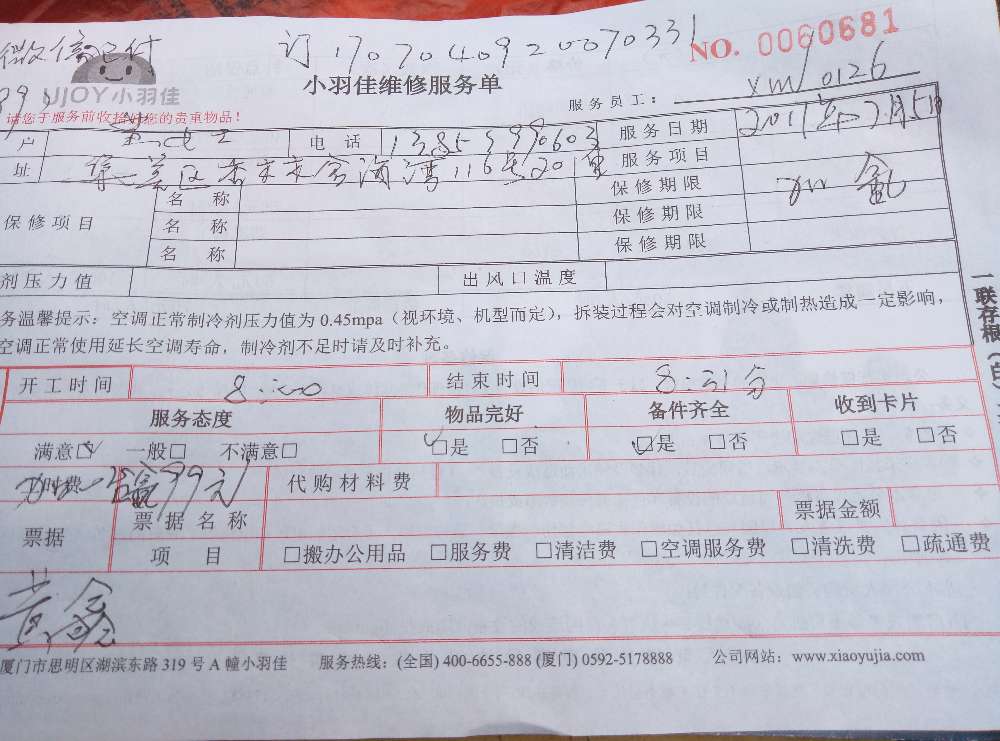 微信已付
订 170704092007033
NO. 0060681
UJOY 小羽佳
小羽佳维修服务单
请您于服务前收拾好您的贵重物品!
服务员工: xm/0126
户 电话 服务日期
址 服务项目
保修项目
名称 保修期限
名称 保修期限
名称 保修期限
剂压力值 出风口温度
务温馨提示:空调正常制冷剂压力值为 0.45mpa(视环境、机型而定),拆装过程会对空调制冷或制热造成一定影响,
空调正常使用延长空调寿命,制冷剂不足时请及时补充。
一联存根(白)
开工时间 8:00 结束时间 8:31分
服务态度 物品完好 备件齐全 收到卡片
满意☑ 一般□ 不满意□ ☑是 □否 ☑是 □否 □是 □否
时费 99元 代购材料费
票据 票据名称 票据金额
项目 □搬办公用品 □服务费 □清洁费 □空调服务费 □清洗费 □疏通费
黄鑫
厦门市思明区湖滨东路 319 号 A 幢小羽佳 服务热线:(全国) 400-6655-888 (厦门) 0592-5178888 公司网站:www.xiaoyujia.com